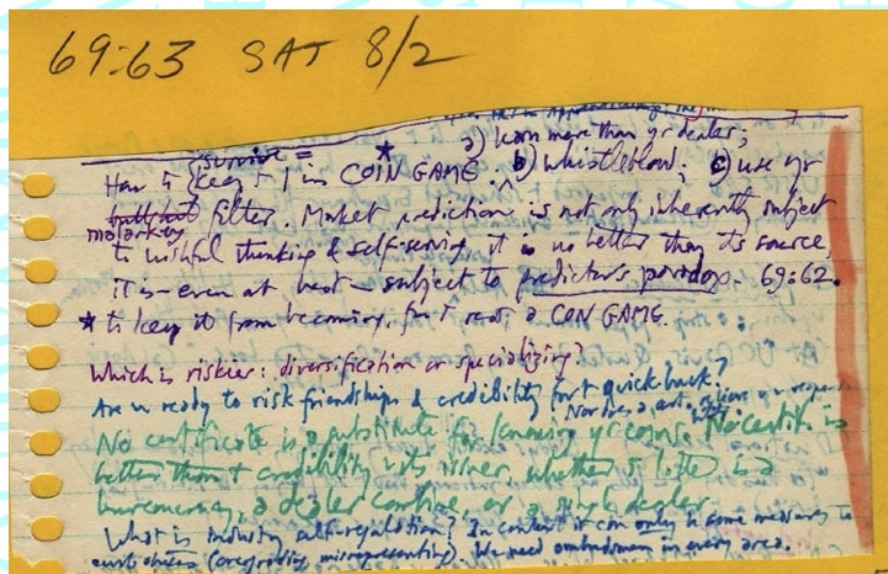 69:63 SAT 8/2
a) learn more than yr dealer;
survive =
How to {keep + 1 in COIN GAME*: b) whistleblow; c) use yr
malarkey filter. Market prediction is not only inherently subject
to wishful thinking & self-serving, it is no better than its source,
it is – even at best – subject to predictor's paradox – 69:62.
* to keep it from becoming, for + rest, a CON GAME.
Which is riskier: diversification or specializing?
Are u ready to risk friendships & credibility for + quick buck?
Nor does a cert. relieve u
No certificate is a substitute for knowing yr coins. No certif. is
better than + credibility its issuer, whether + latter is a
bureaucracy, a dealer combine, or a single dealer.
What is industry self-regulation? In context it can only be some measures to
curb abuses (overgrading, misrepresenting). We need ombudsman in every area.